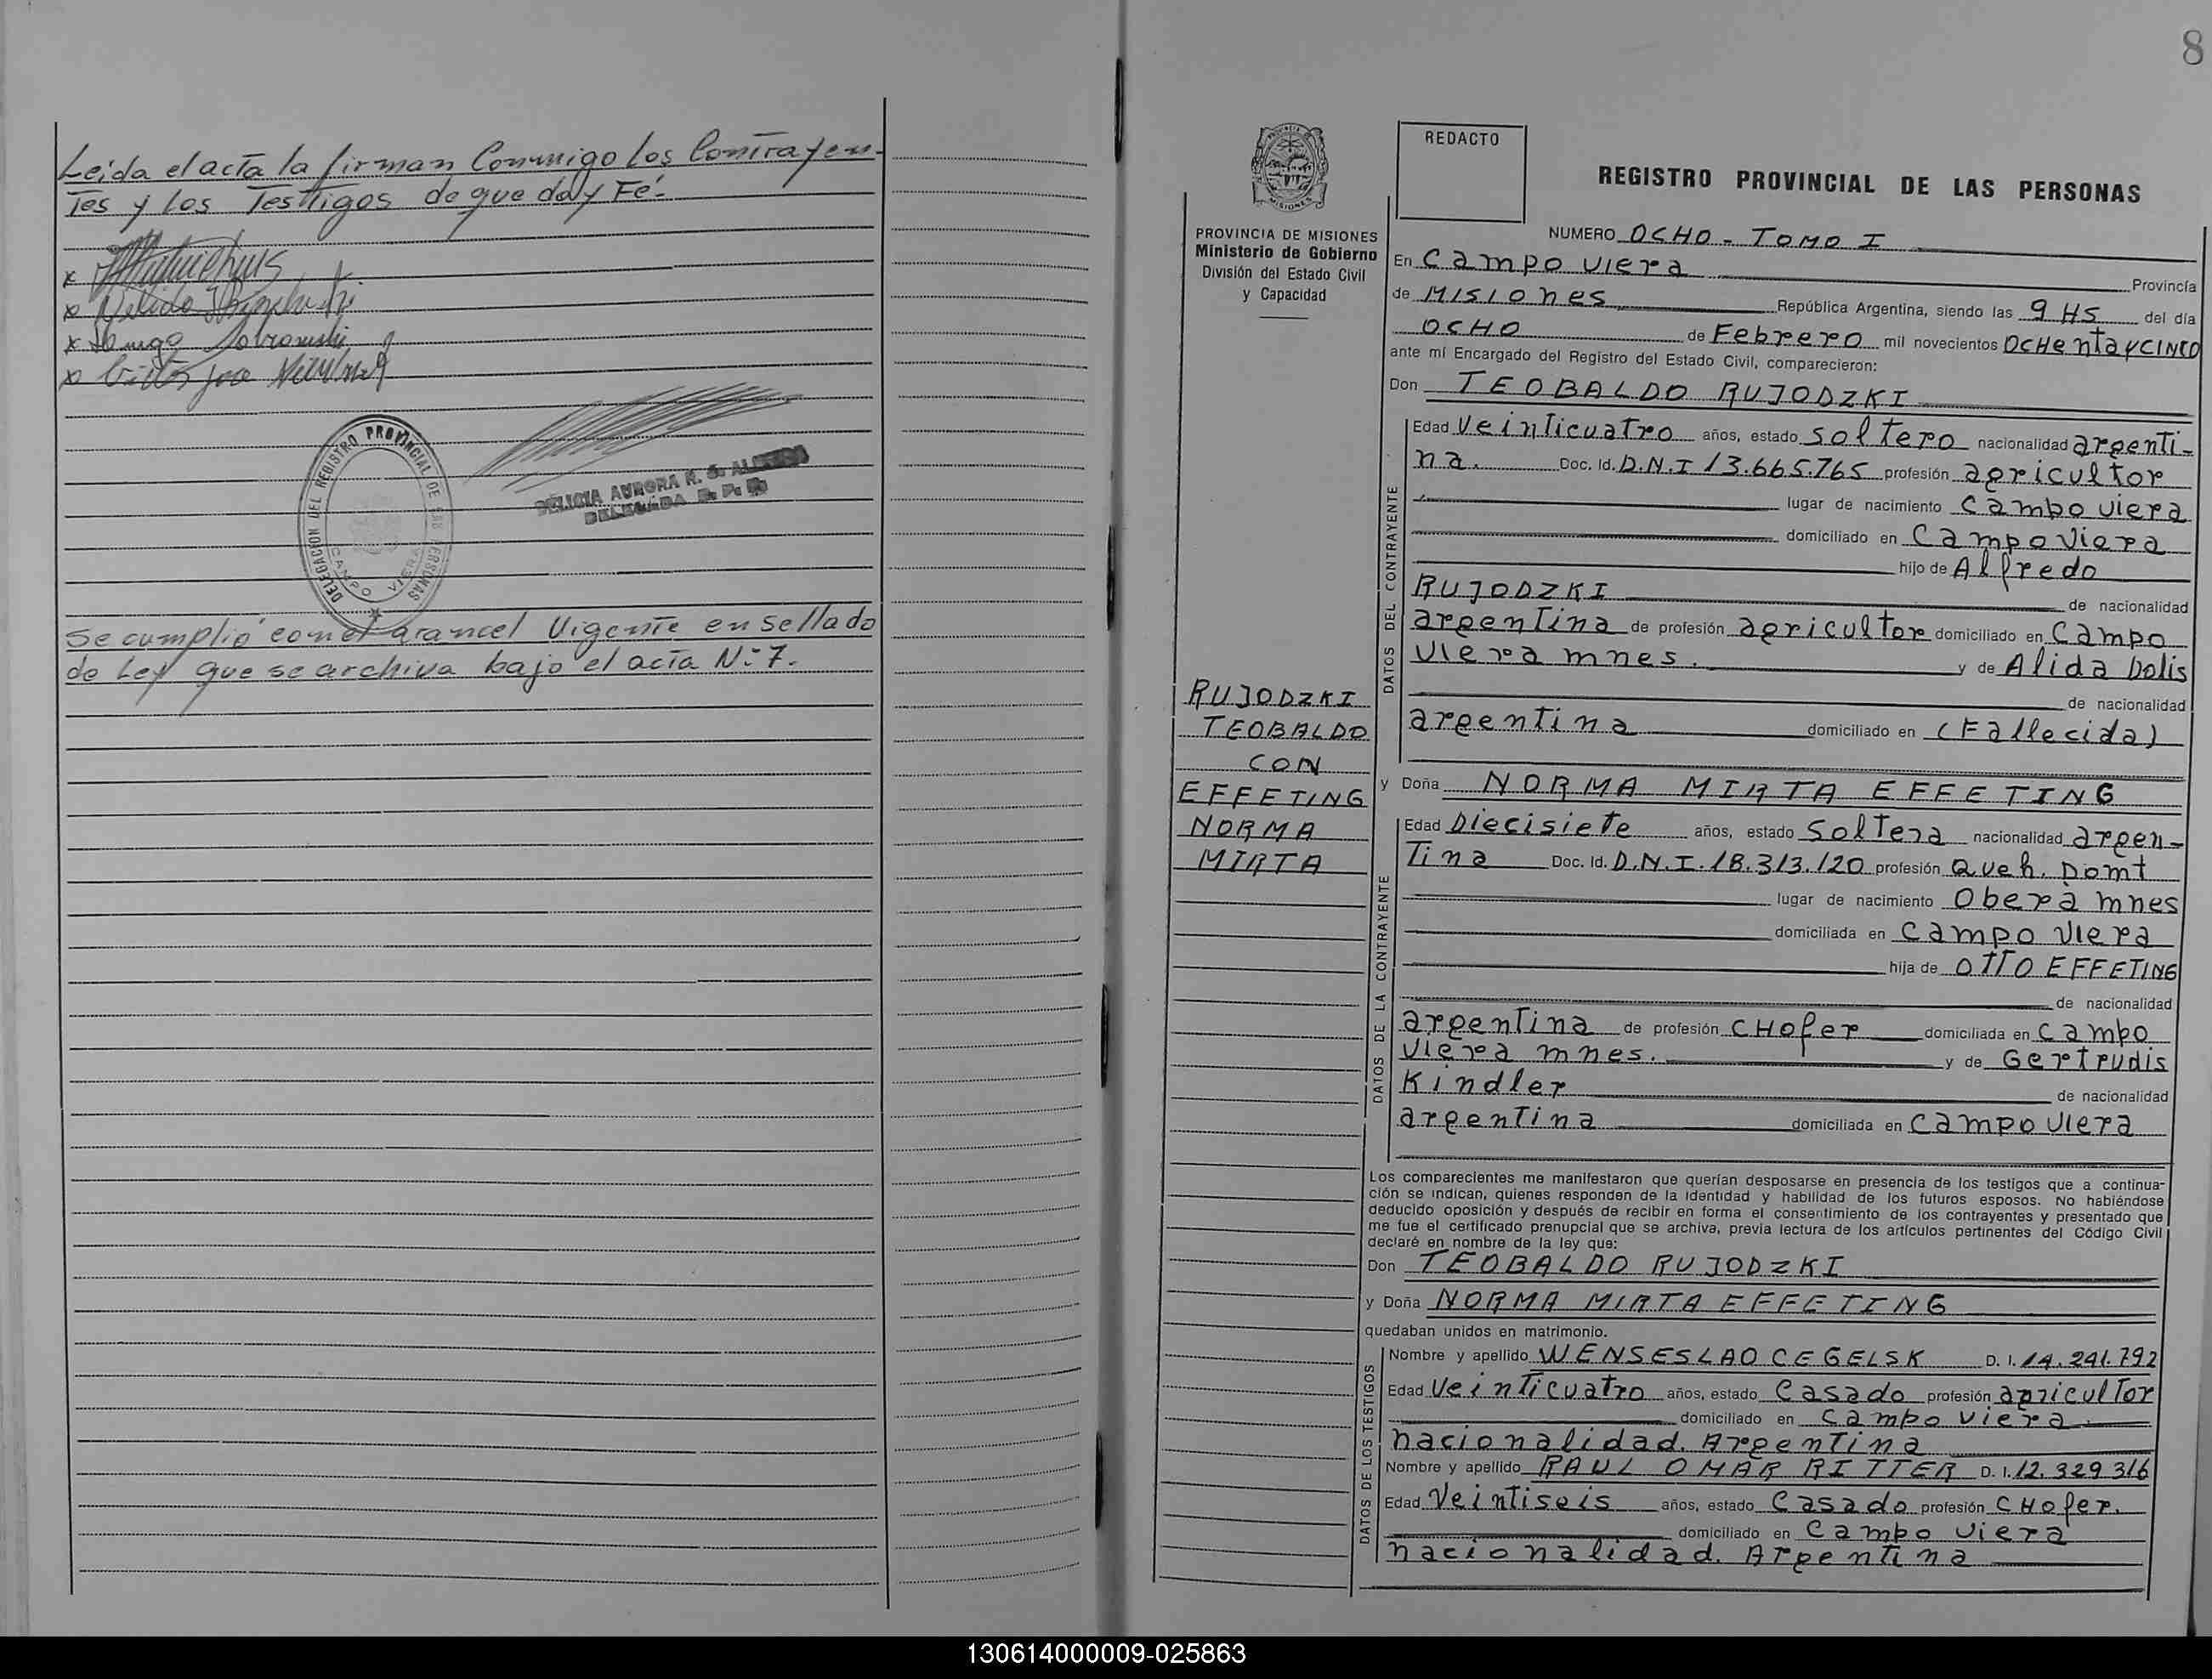 Leida el acta la firman Conmigo los Contrayen-
Tes y los Testigos de que doy Fé.-
x
x Nelida
x Hugo
x
DELEGACION DEL REGISTRO PROVINCIAL DE LAS PERSONAS
CAMPO VIERA
DELICIA AURORA R. G.
DELEGADA R. P. P.
Se cumplió con el arancel Vigente en sellado
de Ley que se archiva bajo el acta N:º 7.-
8
REDACTO
REGISTRO PROVINCIAL DE LAS PERSONAS
MISIONES
PROVINCIA DE MISIONES
Ministerio de Gobierno
División del Estado Civil
y Capacidad
NUMERO OCHO - TOMO I
En Campo Viera Provincia
de Misiones República Argentina, siendo las 9 HS del día
OCHO de Febrero mil novecientos OCHentayCINCO
ante mí Encargado del Registro del Estado Civil, comparecieron:
Don TEOBALDO RUJODZKI
DATOS DEL CONTRAYENTE
Edad Veinticuatro años, estado Soltero nacionalidad argenti-
na. Doc. Id. D.N.I 13.665.765 profesión agricultor
lugar de nacimiento Campo Viera
domiciliado en Campo Viera
hijo de Alfredo
RUJODZKI de nacionalidad
argentina de profesión agricultor domiciliado en Campo
Viera mnes. y de Alida Dolis
de nacionalidad
argentina domiciliado en (Fallecida)
RUJODZKI
TEOBALDO
CON
EFFETING
NORMA
MIRTA
y Doña NORMA MIRTA EFFETING
DATOS DE LA CONTRAYENTE
Edad Diecisiete años, estado Soltera nacionalidad argen-
Tina Doc. Id. D.N.I. 18.313.120 profesión Queh. Domt
lugar de nacimiento Oberà mnes
domiciliada en Campo Viera
hija de OTTO EFFETING
de nacionalidad
argentina de profesión CHofer domiciliada en Campo
Viera mnes. y de Gertrudis
Kindler de nacionalidad
argentina domiciliada en Campo Viera
Los comparecientes me manifestaron que querían desposarse en presencia de los testigos que a continua-
ción se indican, quienes responden de la identidad y habilidad de los futuros esposos. No habiéndose
deducido oposición y después de recibir en forma el consentimiento de los contrayentes y presentado que
me fue el certificado prenupcial que se archiva, previa lectura de los artículos pertinentes del Código Civil
declaré en nombre de la ley que:
Don TEOBALDO RUJODZKI
y Doña NORMA MIRTA EFFETING
quedaban unidos en matrimonio.
DATOS DE LOS TESTIGOS
Nombre y apellido WENSESLAO CEGELSK D. I. 14.241.792
Edad Veinticuatro años, estado Casado profesión agricultor
domiciliado en Campo Viera
nacionalidad. Argentina
Nombre y apellido RAUL OMAR RITTER D. I. 12.329 316
Edad Veintiseis años, estado Casado profesión CHofer.
domiciliado en Campo Viera
nacionalidad. Argentina
130614000009-025863